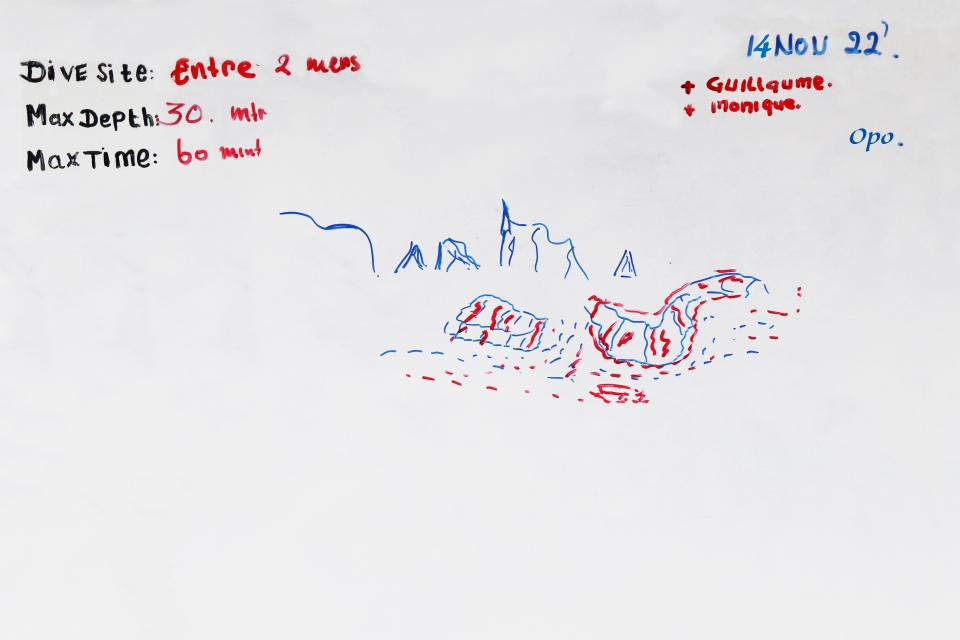 14 NOV 22'.
DIVE Site: Entre 2 mers
+ Guillaume.
+ monique.
Max Depth: 30. mtr
Opo.
Max TIME: 60 mint